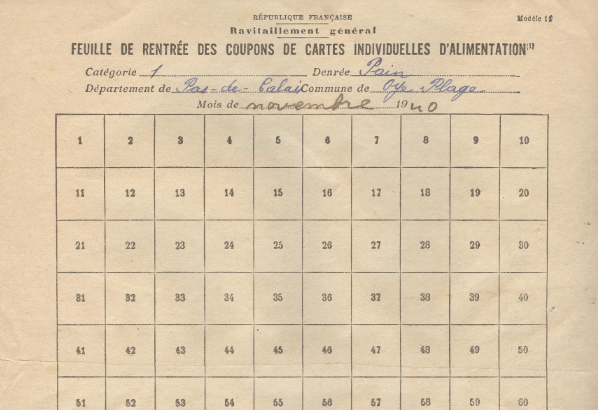 RÉPUBLIQUE FRANÇAISE
Modèle
Ravitaillement général
FEUILLE DE RENTRÉE DES COUPONS DE CARTES INDIVIDUELLES D'ALIMENTATION(1)
Catégorie 1 Denrée Pain
Département de Pas-de-Calais Commune de Oye Plage
Mois de novembre 1940
1 2 3 4 5 6 7 8 9 10
11 12 13 14 15 16 17 18 19 20
21 22 23 24 25 26 27 28 29 30
31 32 33 34 35 36 37 38 39 40
41 42 43 44 45 46 47 48 49 50
51 52 53 54 55 56 57 58 59 60